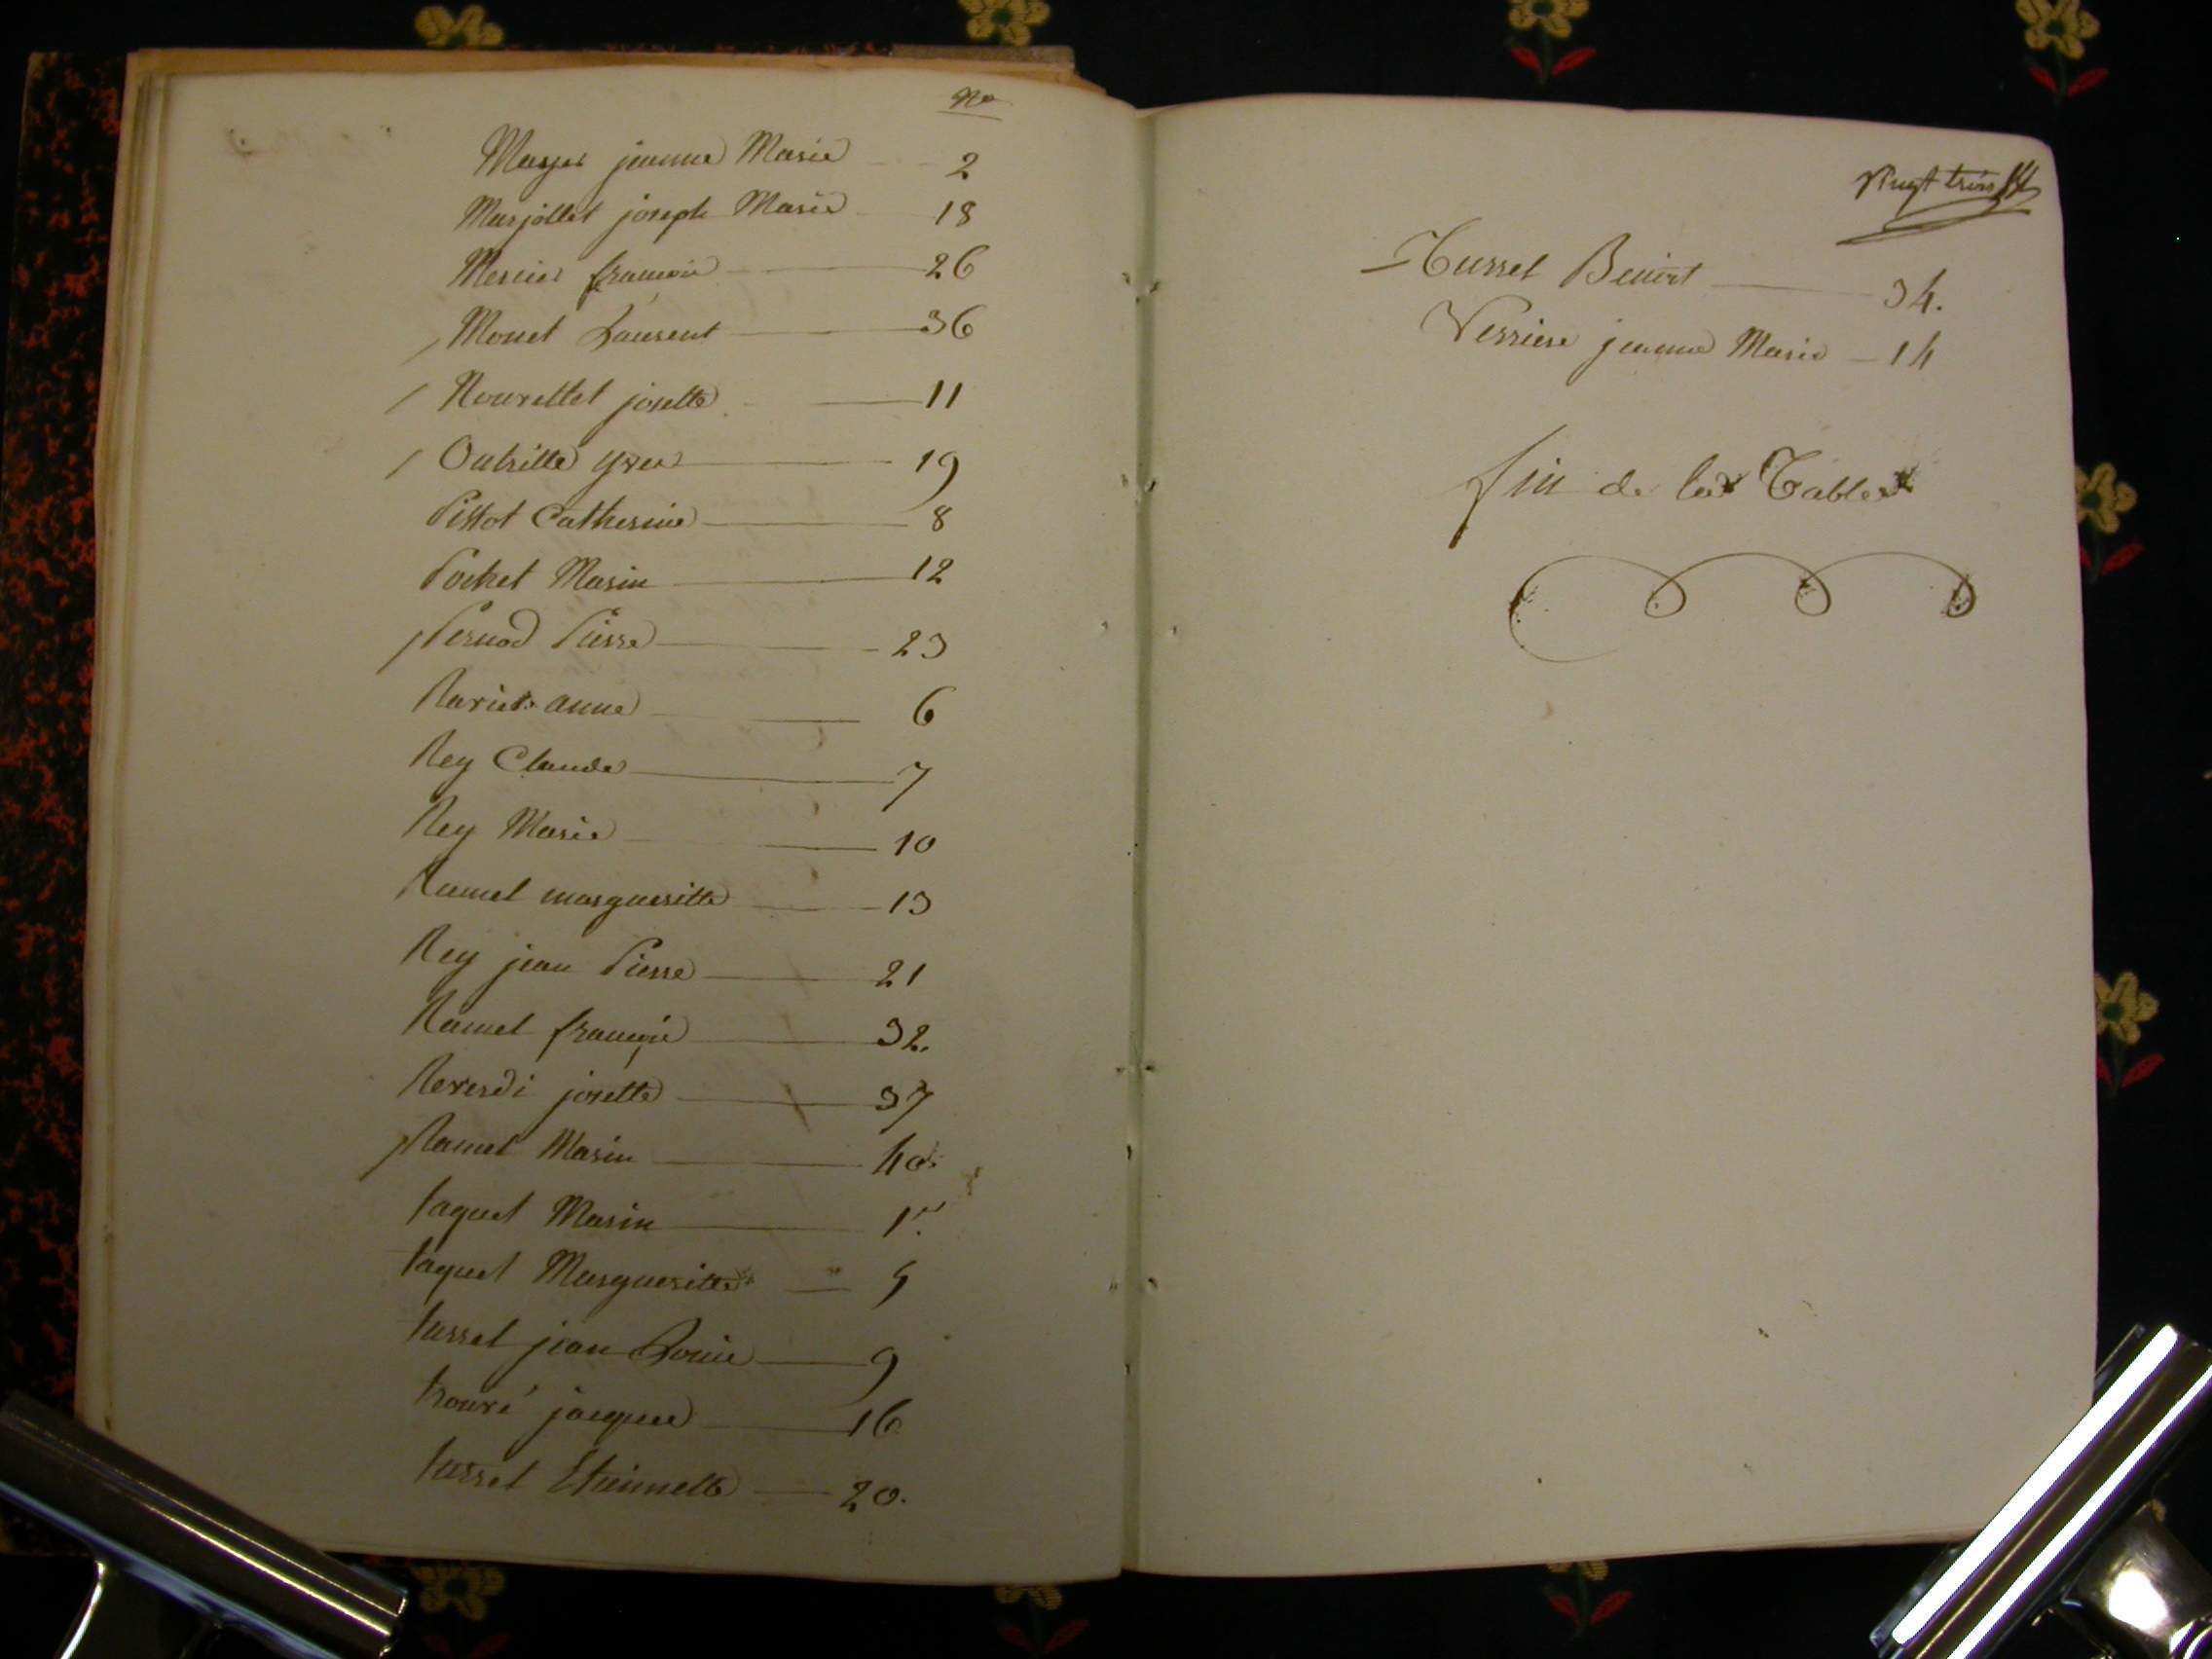 No
Mayer jeanne Marie 2
Marjollet joseph Marie 18
Mercier françois 26
Monet Laurent 36
Nouvellet josette 11
Outrille yves 19
Pittot Catherine 8
Pochet Marin 12
Pernod Pierre 23
Ravier anne 6
Rey Claude 7
Rey Marie 10
Ramel margueritte 13
Rey jean Pierre 21
Ramel françois 32.
Reverdi josette 37
Ramel Marin 40.
taquet Marin 1er
taquet Margueritte 5
tusset jean Louis 9
trouvé jacques 16
tusset Etiennette 20.
vingt trois
Tusset Benoit 34.
Verriere jeanne Marie 14
fin de la Table